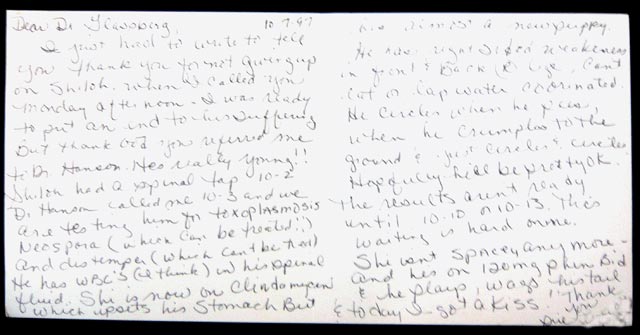 Dear Dr Glassberg, 10-7-97
I just had to write to tell
you thank you for not giving up
on Shiloh. When I called you
Monday afternoon - I was ready
to put an end to his suffering
But thank God you referred me
to Dr. Hanson. He's really young!!
Shiloh had a spinal tap 10-2
Dr Hanson called me 10-3 and we
are testing him for toxoplasmosis
Neospora (which can be treated!!)
and distemper (which can't be treated)
He has WBC'S (I think) in his spinal
fluid. She is now on Clindamycin
which upsets his stomach But
almost a new puppy.
He has right sided weakness
in front & Back (R) Can't
eat or lap water coordinated.
He circles when he pees,
when he crumples to the
ground & just circles & circles
Hopefully he'll be pretty OK.
The results aren't ready
until 10-10 or 10-13. This
waiting is hard on me.
She isn't any more -
and he's on 120mg phen Bid
& he plays, wags his tail
& today I got a kiss!! Thank
You